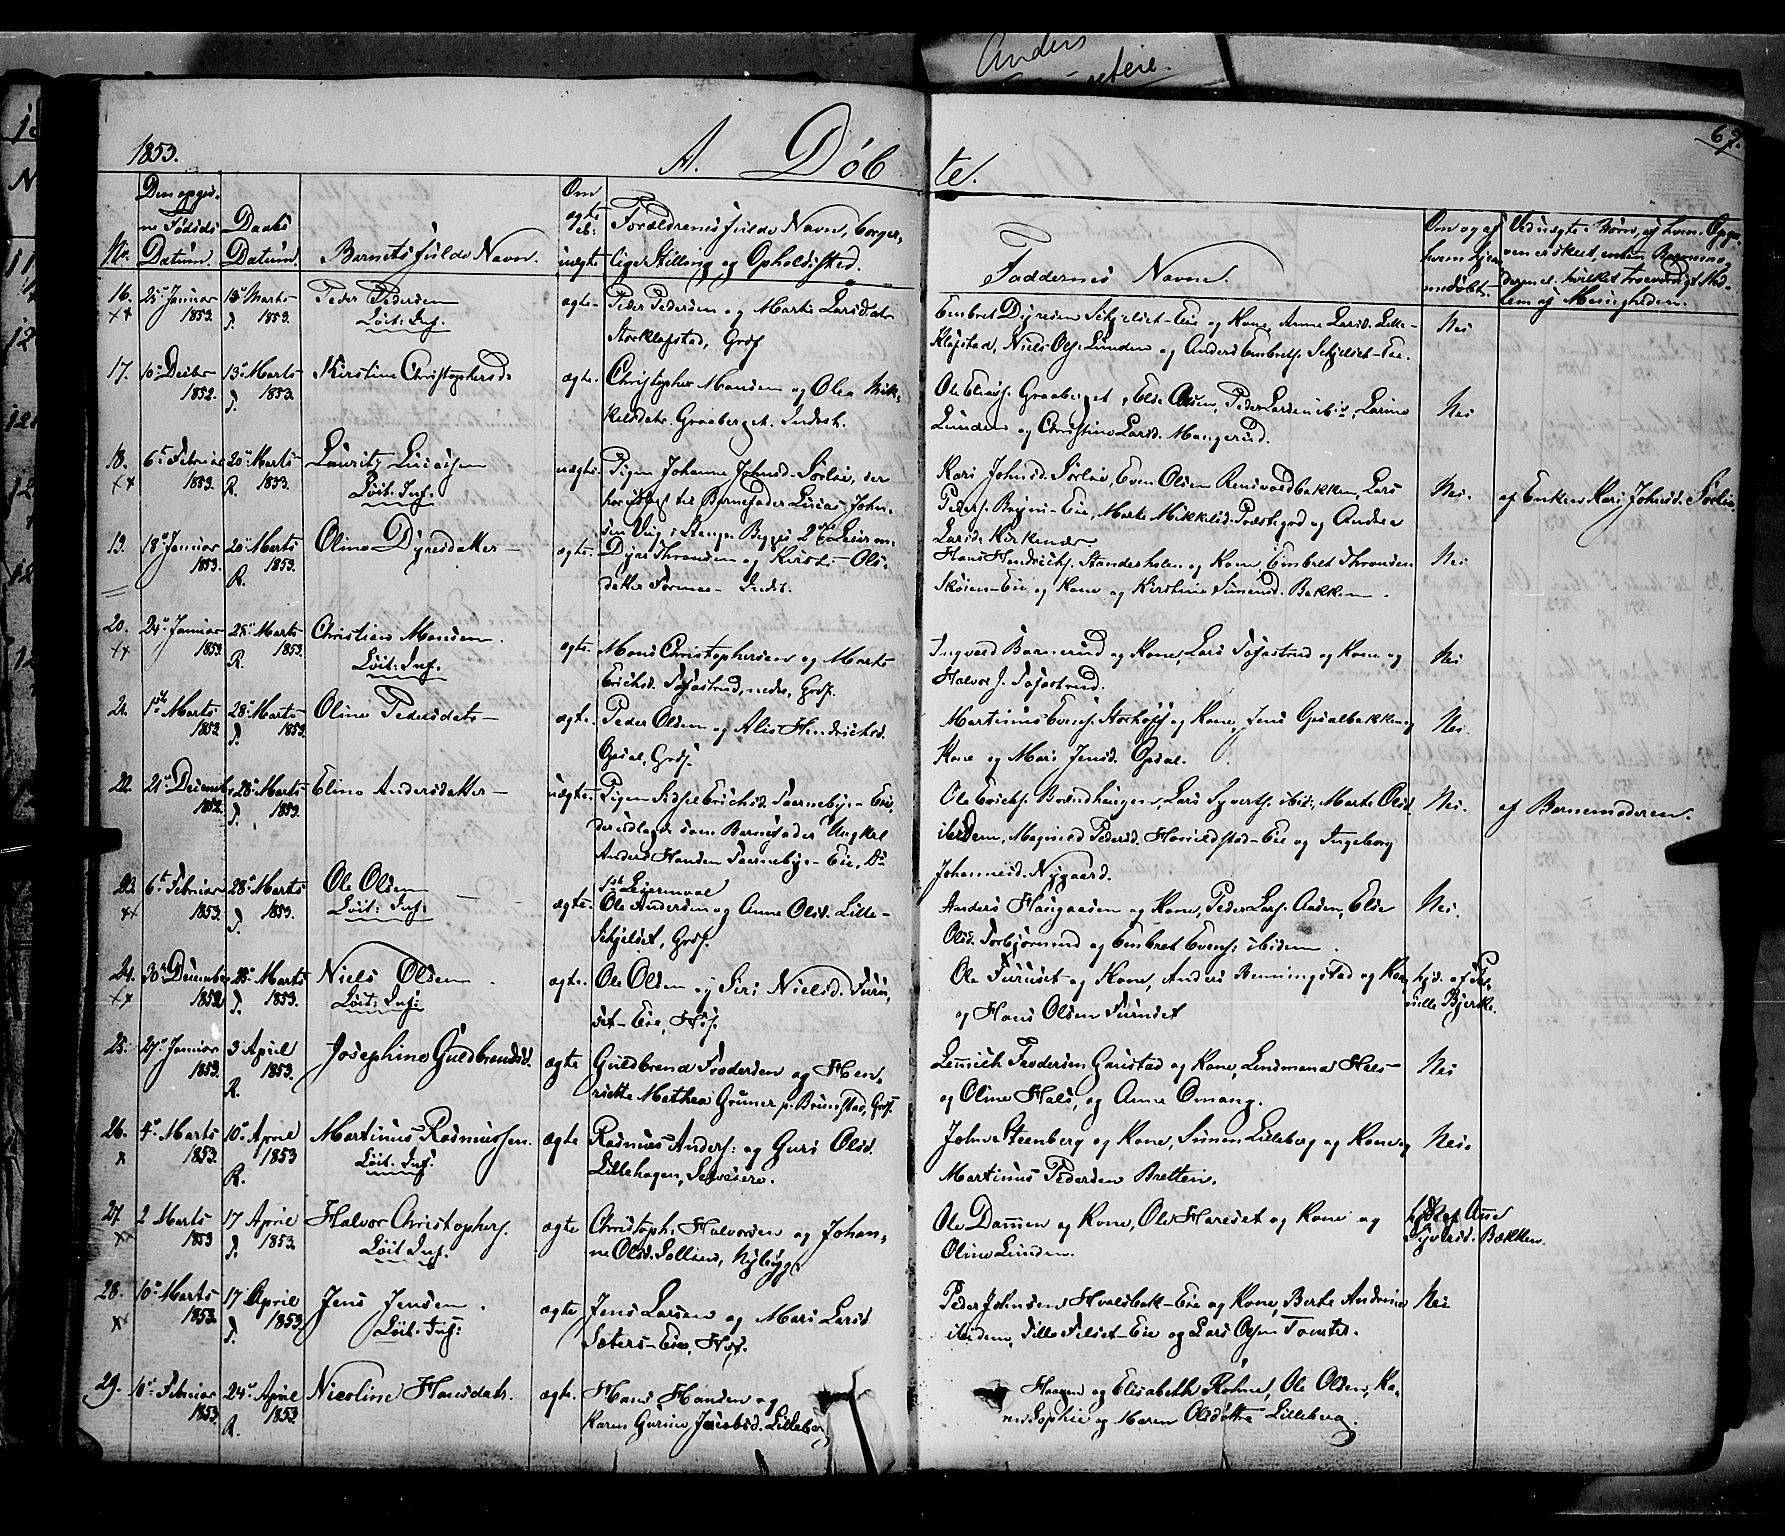 Anders
1853.
A. Døbte.
67.
No.
Den opgivne Fødsels Datum.
Daabs Datum.
Barnets fulde Navn.
Om ægte el: uægte
Forældrenes fulde Navn, borgerlige Stilling og Opholdssted.
Faddernes Navne.
Om og af hvem hjemmedøbt.
Ved uægte Børn, af hvem Opgaven er skeet, enten Barnemoderen el. hvilket troeværdigt Medlem af Menigheden.
16. 25 Januar 1853. 13 Marts 1853. Peder Pedersen ægte. Peder Pedersen og Marthe Larsdatr
xx Løit: Inf.
Storkløfstad, Grdf.
Embret Dyresen Skjelset-Eie og Kone, Anne Larsd. Lille-
Kløfstad, Niels Ols. Lunden og Anders Embrets. Skjelset-Eie.
Nei
17. 10 Decbr 1852. 13 Marts 1853. Kirstine Christophersd. ægte. Christopher Monsen og Olea Mik-
kelsdatr. Graaberget. Inderst.
Ole Eliass. Graaberget, Else Olsen, Peder Larsen ibid, Larine
Lunden og Christine Larsd. Mangerud.
Nei
18. 6 Februar 1853. 20 Marts R. 1853. Lauritz Luciassen uægte. Pigen Johanne Johnsd. Sørlie, der
xx Løit: Inf.
til Barnefader Lucias John-
sen Viig i Stange. Begges 2det Leierm.
Kari Johnsd. Sørlie, Even Olsen Rensvoldbakken, Lars
Peders. Bryni-Eie, Marthe Mikkelsd. Præstegrd og Andrea
Larsd. Kirkenær.
Nei. af Enken Kari Johnsd. Sørlie
19. 18 Januar 1853. 20 Marts R. 1853. Oline Dyresdatter ægte. Dyre Thronsen og Kirsti Ols-
datter Formoe - Inderst.
Hans Hendrichs. Standerholen og Kone, Embret Thronsen
Skøien-Eie og Kone og Kirstine Simensd. Bakken.
Nei
20. 24 Januar 1853. 28 Marts R. 1853. Christian Monsen. ægte. Mons Christophersen og Marthe
xx Løit: Inf.
Erichsd. Tofastrud, nedre, Grdf.
Ingvald Barnerud og Kone, Lars Tofastrud og Kone og
Halvor J. Tofastrud.
Nei
21. 1ste Marts 1852 28 Marts 1853. Oline Pedersdatr ægte. Peder Olsen og Alis Hendrichsd.
Opsal, Grdf.
Martinus Evens. Storhoff og Kone, Jens Opsalbakken og
Kone og Mari Jensd. Opsal.
Nei.
22. 21 Decemb. 1852. 28 Marts 1853. Eline Andersdatter uægte. Pigen Sidsel Erichsd. Taarneby-Eie,
der udlagde som Barnefader Ungkarl
Anders Hansen Taarneby-Eie. D:
1ste Leiermaal
Ole Erichs. Brændhaugen, Lars Syverts. ibid, Marthe Olsd.
ibidem, Magnild Pedersd. Haavelsstad-Eie og Ingeborg
Johannesd. Nygaard.
Nei. af Barnemoderen.
23. 6 Februar 1853. 28 Marts 1853. Ole Olsen ægte. Ole Andersen og Anne Olsd. Lille-
xx Løit: Inf.
Skjelset, Grdf.
Anders Haugaasen og Kone, Peder Lars. Aasen, Else
Olsd. Torbjørnrud og Embret Evens. ibidem.
Nei.
24. 30 Decembr 1852. 28 Marts 1853. Niels Olsen. ægte. Ole Olsen og Siri Nielsd. Furu-
xx Løit: Inf:
set-Eie, Hsf.
Ole Furuset og Kone, Anders Benningstad og Kone
og Hans Olsen Furuset
hjd. af Bjerke.
25. 27 Januar 1853. 3 April R. 1853. Josephine Guldbrandsd. ægte Guldbrand Frodersen og Hen-
riette Mathea Gruner p. Brunstad, Grdf.
Lensich Frodersen Gaustad og Kone, Lensmand Hals
og Oline Hals, og Anne Omang.
Nei
26. 4 Marts 1853. 10 April R. 1853 Martinus Rasmussen. ægte Rasmus Anders: og Guri Olsd.
x Løit. Inf.
Lillehagen, Selveiere.
John Steenberg og Kone, Simen Lilleberg og Kone og
Martinus Pedersen Bretten.
Nei.
27. 2 Marts 1853 17 April 1853. Halvor Christophers. ægte Christoph: Halvorsen og Johan-
xx Løit Inf.
ne Olsd. Sollien, Nybygg.
Ole Damen og Kone, Ole Hareset og Kone og
Oline Lunden.
hjd. af Anne Syversd. Bækken.
28. 10 Marts 1853. 17 April 1853. Jens Jensen. ægte Jens Larsen og Mari Larsd
xx Løit: Inf:
Sæters-Eie, Hsf.
Peder Johnsen Hvalsbak-Eie og Kone, Berthe Andrine
ibidem, Tille Filset-Eie og Lars Olsen Tomter.
Nei
29. 10 Februar 1853. 24 April R. 1853 Nicoline Hansdatr. ægte. Hans Hansen og
Karen Gurine Jacobsd. Lilleberg
Haagen og Elisabeth Røhne, Ole Olsen, Ka-
ren Sophie og Maren Olsdøttre Lilleberg.